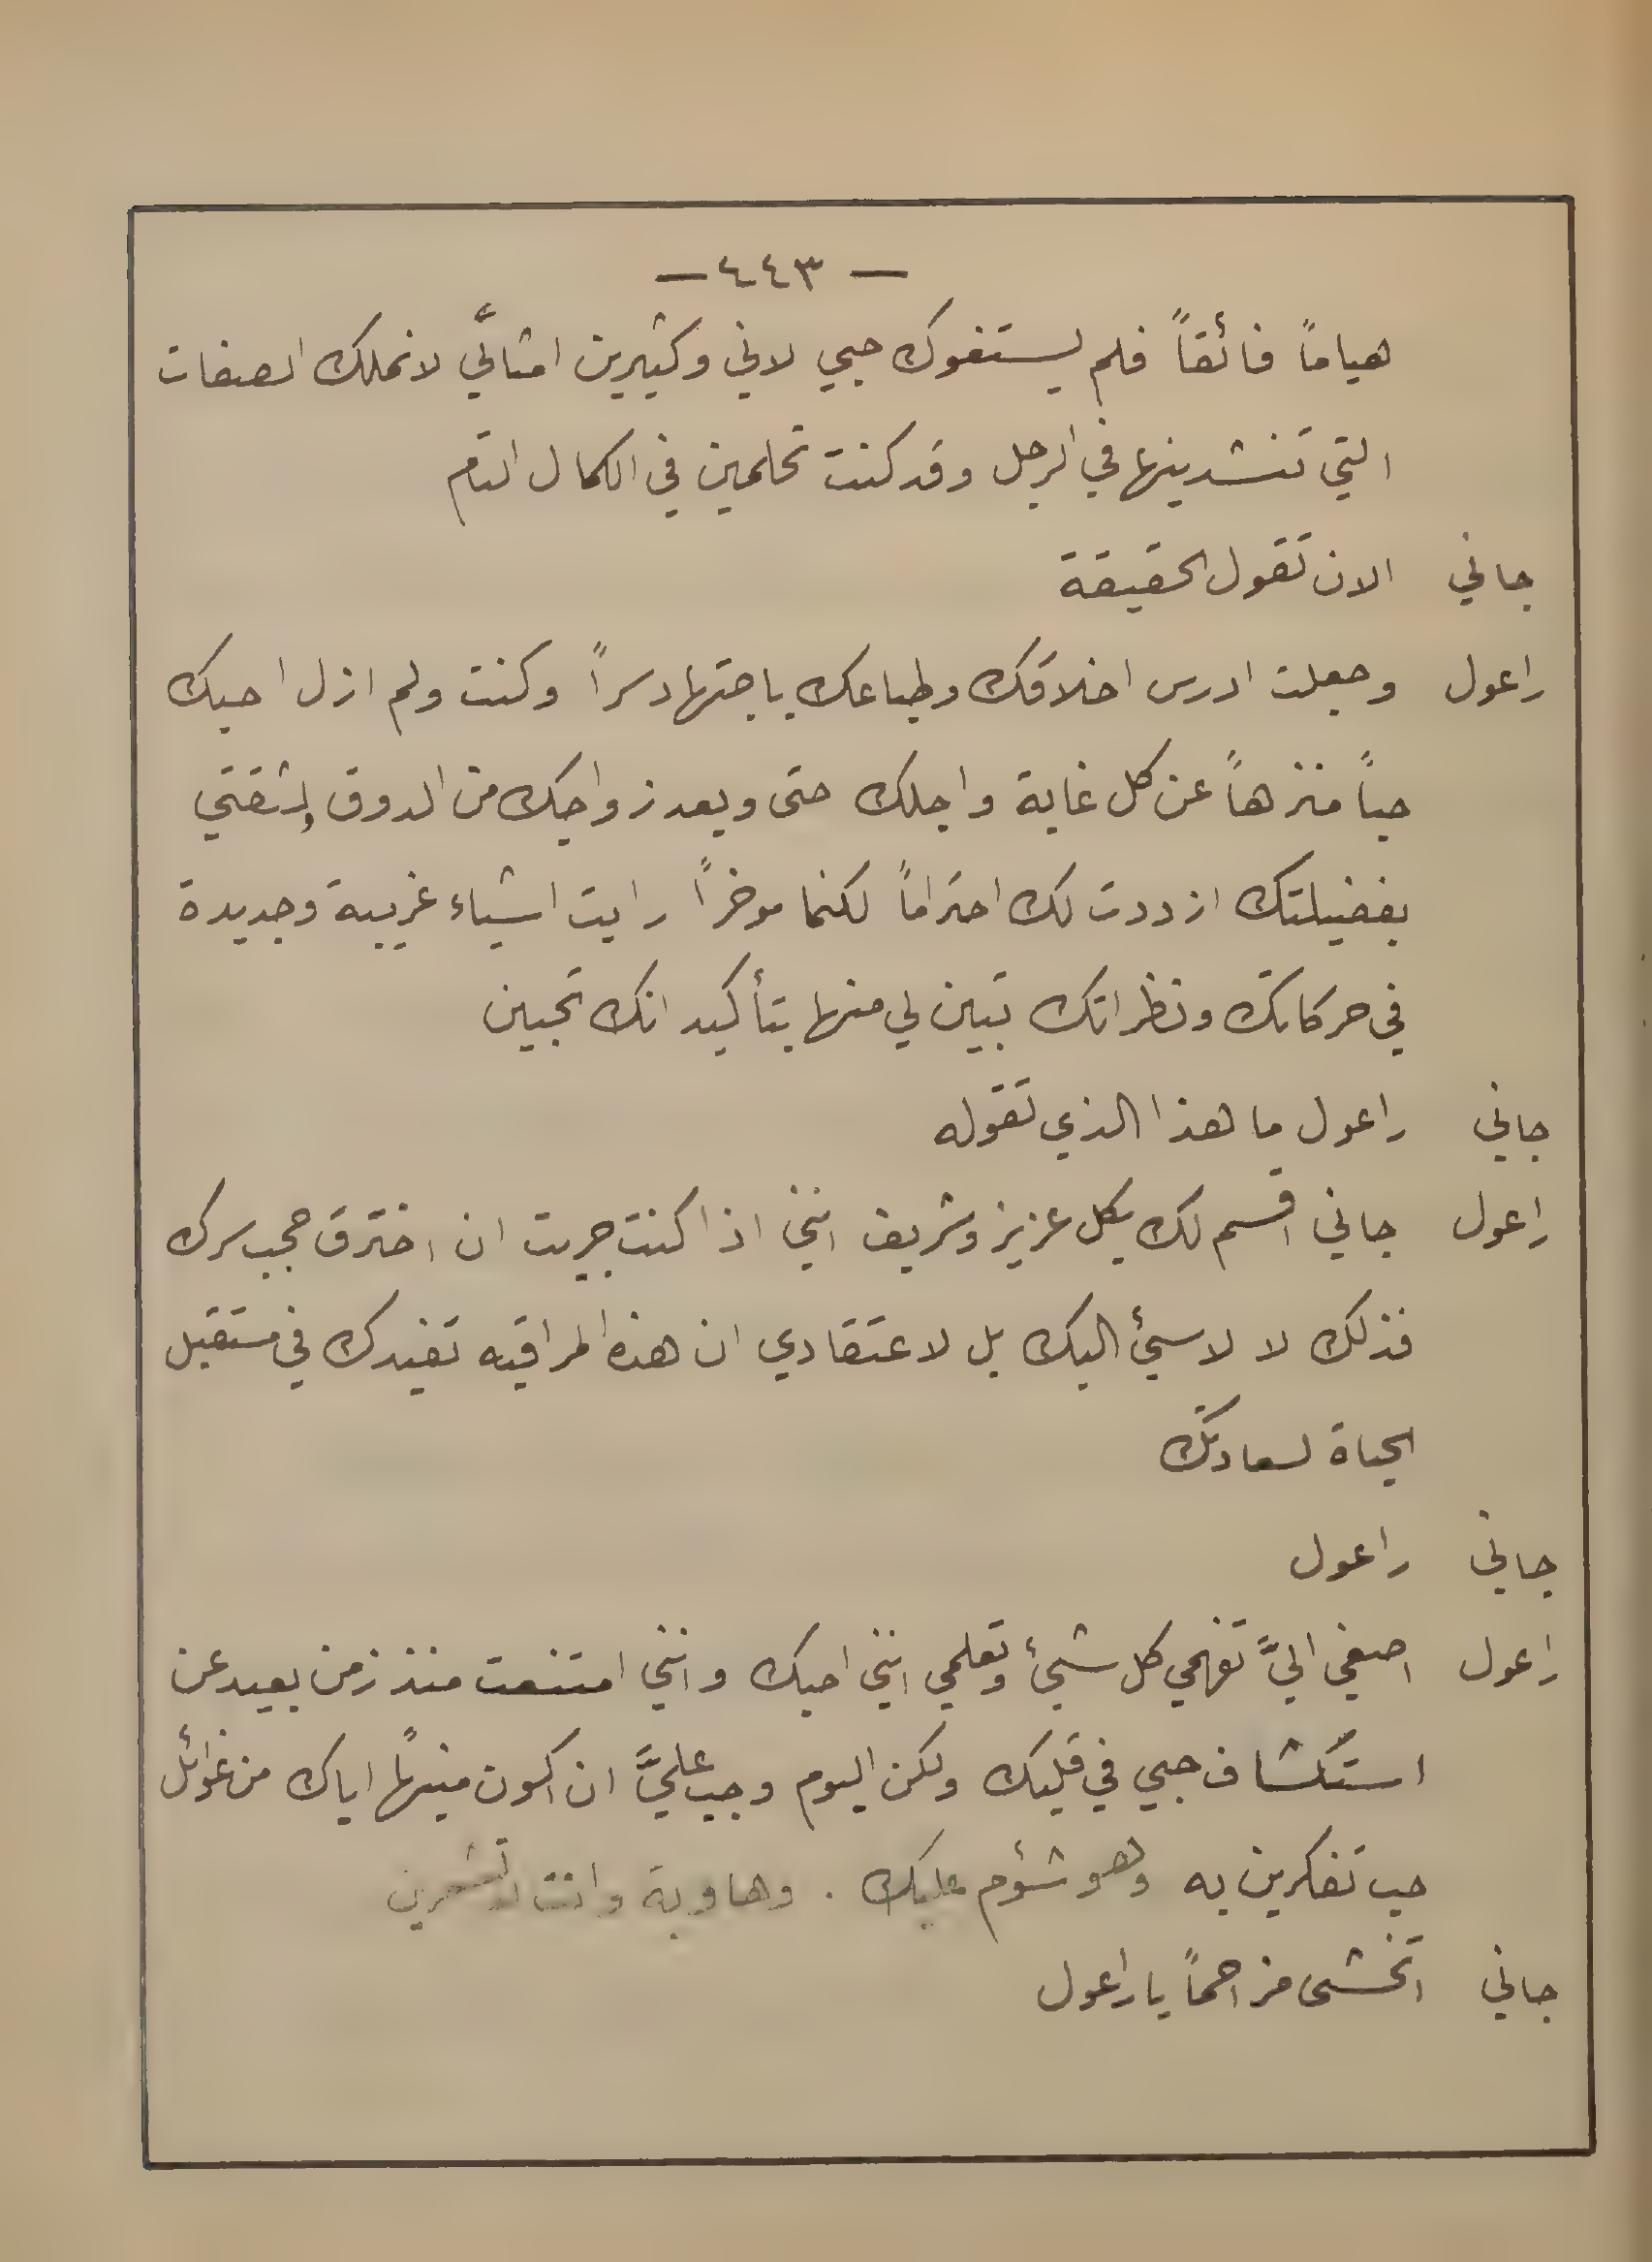 — ٤٤٣ —
هياماً فائقاً فلم يستغوك حبي لاني وكثيرين امثالي لا نملك الصفات
التي تنشدينها في الرجل وقد كنت تحلمين في الكمال التام
جاني الان تقول الحقيقة
راعول وجعلت ادرس اخلاقك وطباعك باجتهاد سراً وكنت ولم ازل احبك
حباً منزهاً عن كل غاية واجلك حتى وبعد زواجك من الدوق ولثقتي
بفضيلتك ازددت لك احتراماً لكنما موخراً رايت اشياء غريبة وجديدة
في حركاتك ونظراتك تبين لي منها بتأكيد انك تحبين
جاني راعول ما هذا الذي تقوله
راعول جاني اقسم لك بكل عزيز وشريف انني اذا كنت جربت ان اخترق حجب سرك
فذلك لا لاسئ اليك بل لاعتقادي ان هذه المراقبه تفيدك في مستقبل
الحياة لسعادتك
جاني راعول
راعول اصغي اليَّ تفهمي كل شئ وتعلمي انني احبك وانني امتنعت منذ زمن بعيد عن
استكشاف حبي في قلبك ولكن اليوم وجب عليَّ ان اكون منبهاً اياك من غوائل
حب تفكرين به وهو شؤم عليك . وهاوية وانت لا تشعرين
جاني اتخشى مزاحماً يا راعول